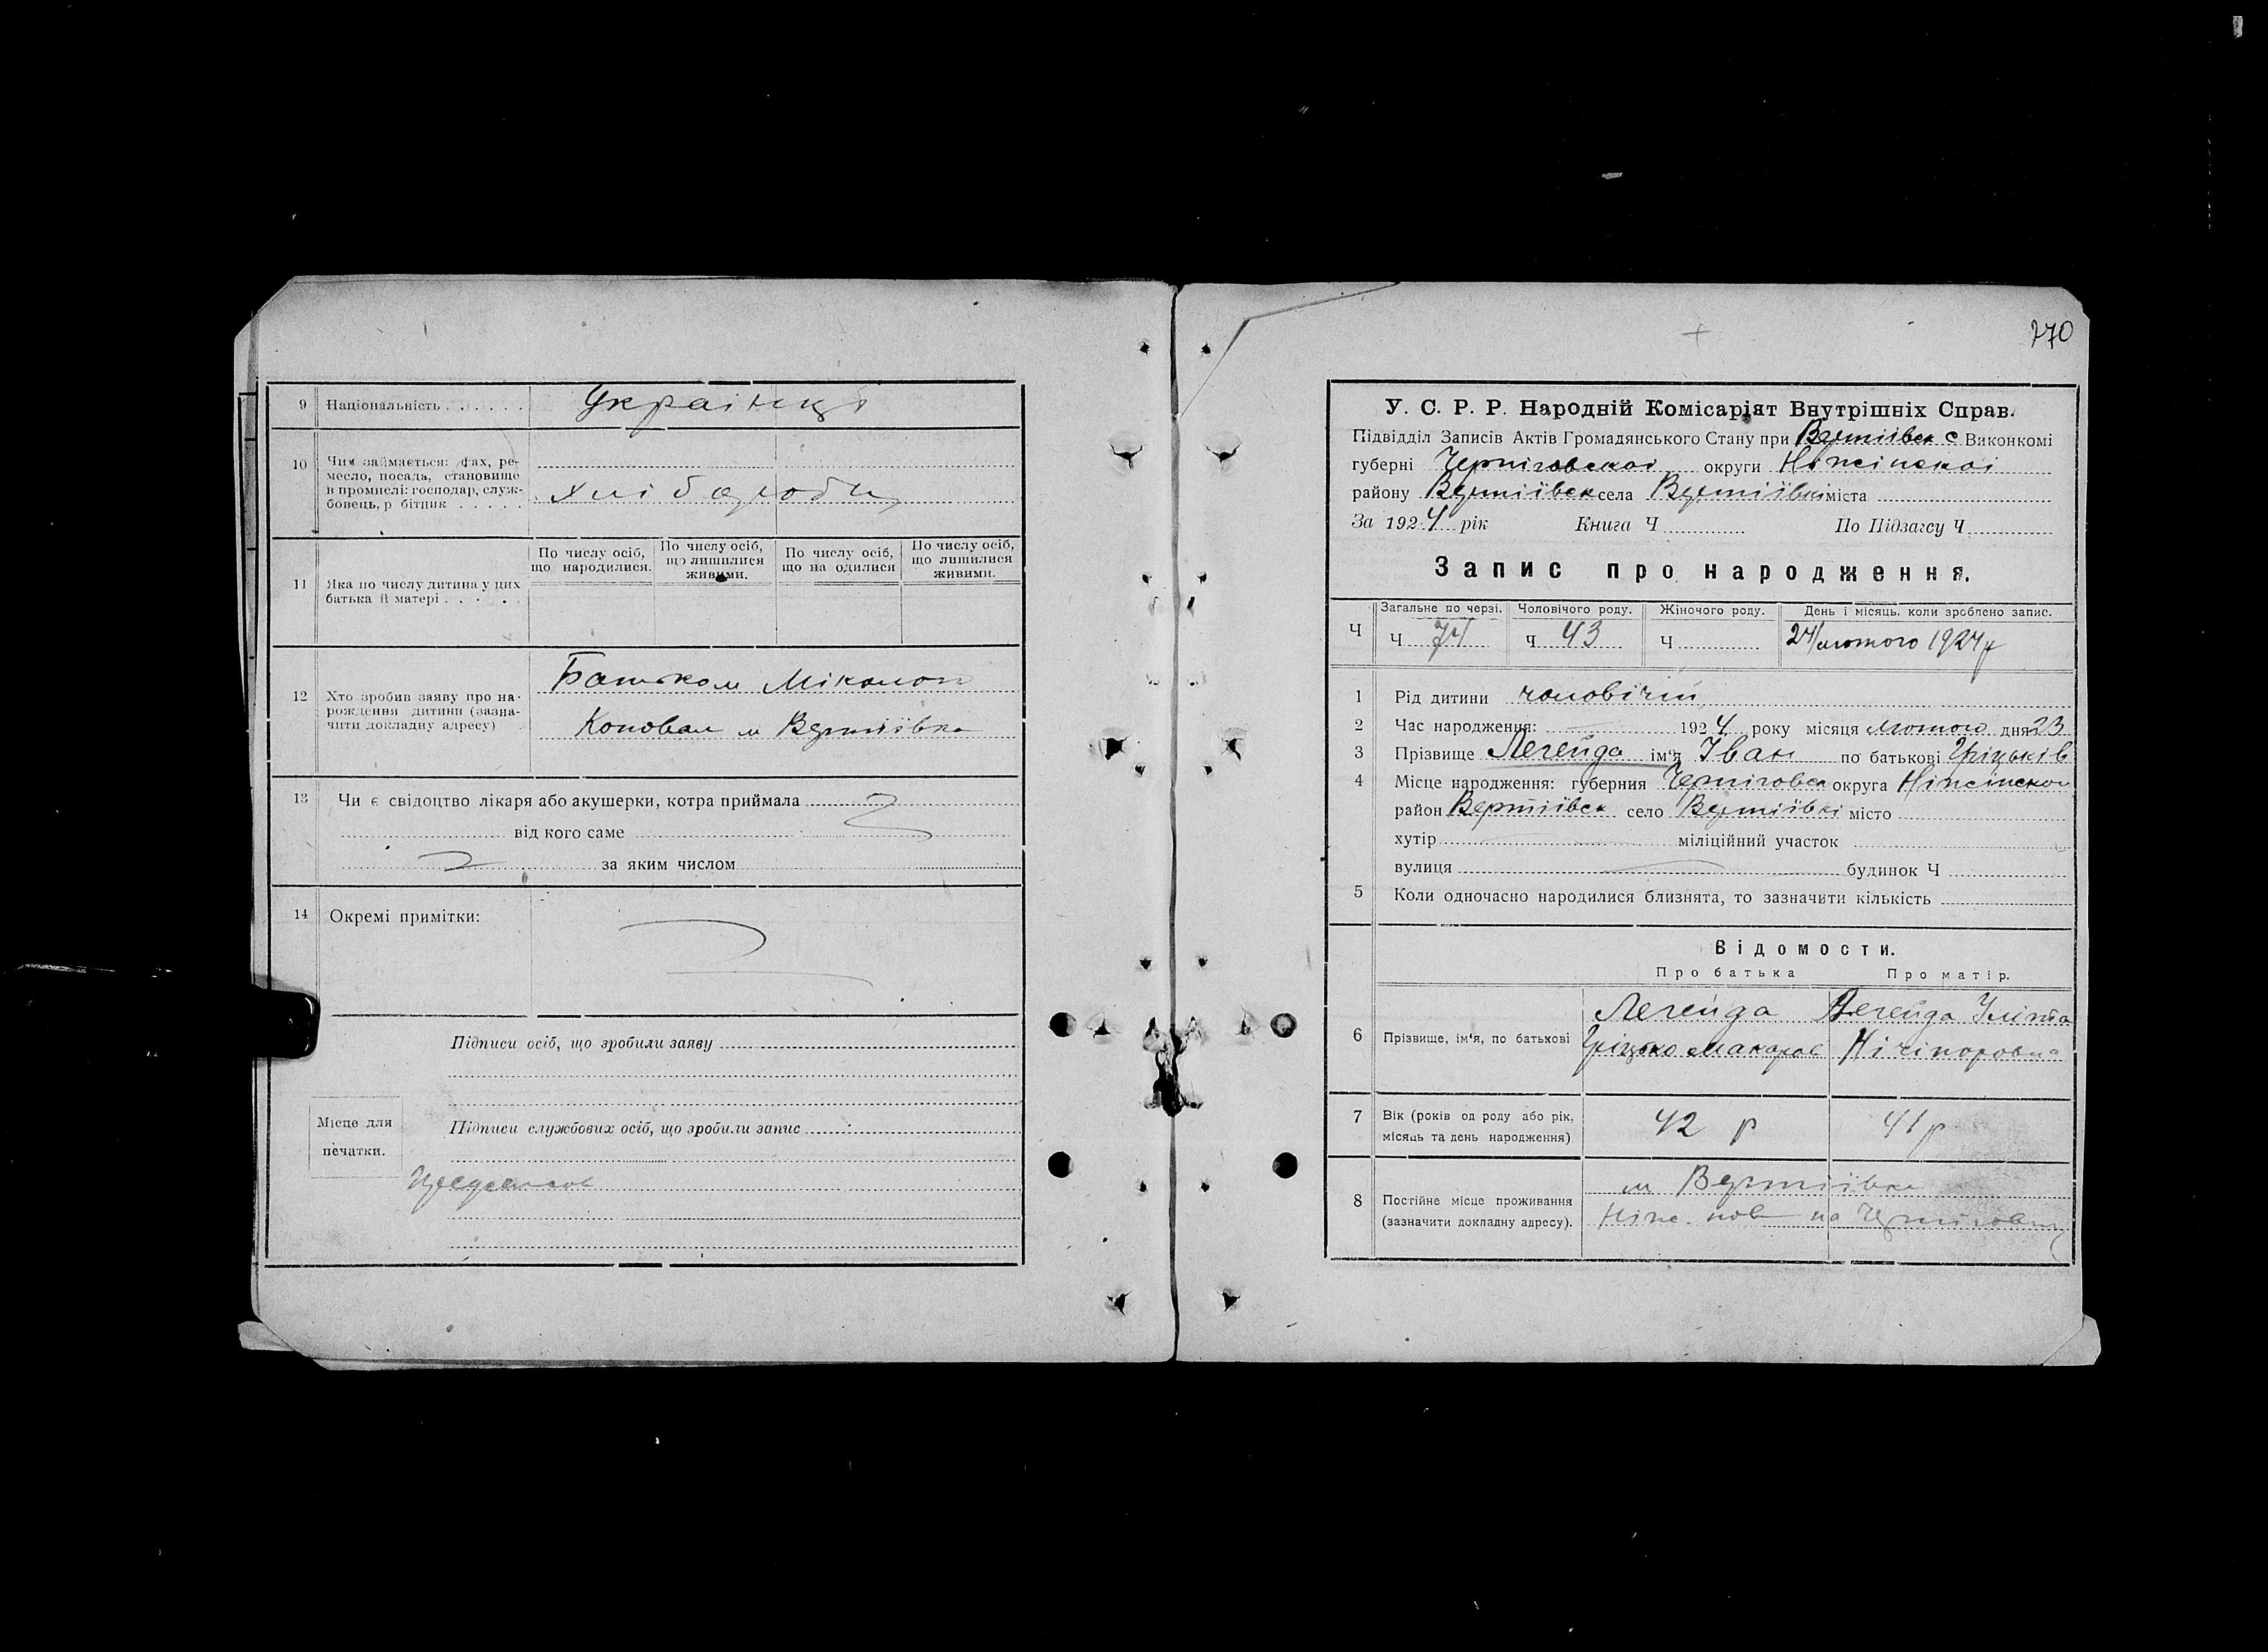 9 Національність . . . . . . Українці
10 Чим займається: фах, ре-
месло, посада, становище
в промислі: господар, служ-
бовець, р бітник . . . . . хліборобц
11 Яка по числу дитина у цих
батька й матері . . . . .
По числу осіб, що народилися.
По числу осіб, що лишилися живими.
По числу осіб, що на одилися
По числу осіб, що лишилися живими.
12 Хто зробив заяву про на-
рождення дитини (зазна-
чити докладну адресу)
Батьком Міколою
Коновал м Вертіївка
13 Чи є свідоцтво лікаря або акушерки, котра приймала
від кого саме
за яким числом
14 Окремі примітки:
Підписи осіб, що зробили заяву
Місце для
печатки.
Підписи службових осіб, що зробили запис
270
У. С. Р. Р. Народній Комісаріят Внутрішніх Справ.
Підвідділ Записів Актів Громадянського Стану при Вертіївск с Виконкомі
губерні Черніговскої округи Ніжінскої
району Вертіївск села Вертіївкі міста
За 1924 рік Книга Ч По Підзагсу Ч
Запис про народження.
Загальне по черзі. Чоловічого роду. Жіночого роду. День і місяць, коли зроблено запис.
Ч Ч 74 Ч 43 Ч 24/лютого 1924 р
1 Рід дитини чоловічій
2 Час народження: 1924 року місяця лютого дня 23
3 Прізвище Легейда ім'я Іван по батькові Гріцьків
4 Місце народження: губерния Черніговск округа Ніжінскої
район Вертіївск село Вертіївкі місто
хутір міліційний участок
вулиця будинок Ч
5 Коли одночасно народилися близнята, то зазначити кількість
Відомости.
Про батька Про матір.
6 Прізвище, ім'я, по батькові
Легейда Легейда Уліта
Гріцько Макаров Нічіпоровна
7 Вік (років од роду або рік,
місяць та день народження)
42 р 41 р
8 Постійне місце проживання
(зазначити докладну адресу).
м Вертіївка
Ніж. пов на Чернігов